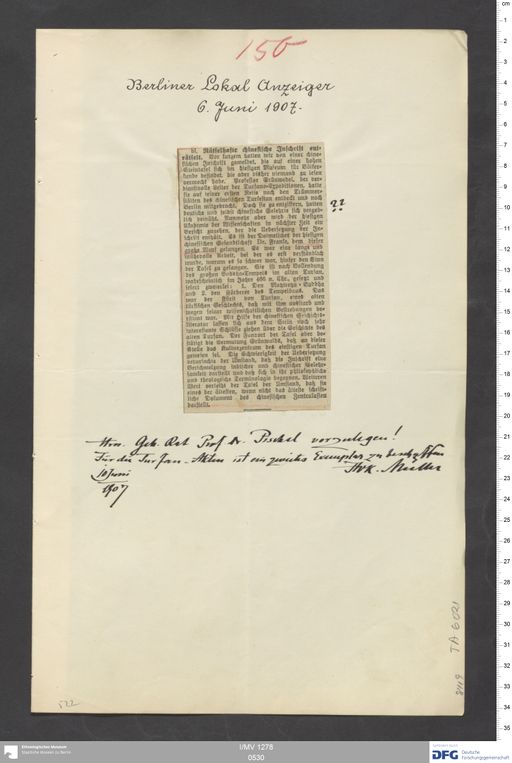 150
Berliner Lokal Anzeiger
6. Juni 1907.
Rätselhafte chinesische Inschrift ent-
rätselt. Vor kurzem hatten wir den einer chine-
sischen Inschrift gemeldet, die auf einer hohen
Steintafel sich im hiesigen Museum für Völker-
kunde befindet, die aber bisher niemand zu lesen
vermocht habe. Professor Grünwedel, der ver-
dienstvolle Leiter der Turfan-Expeditionen, hatte
sie auf seiner ersten Reise nach den Trümmer-
stätten des chinesischen Turkestan entdeckt und nach
Berlin mitgebracht. Doch sie zu entziffern, hatten
deutsche und selbst chinesische Gelehrte sich vergeb-
lich bemüht. Nunmehr aber wird der hiesigen
Akademie der Wissenschaften in nächster Zeit ein
Bericht zugehen, der die Uebersetzung der In-
schrift enthält. Es ist der Dolmetscher der hiesigen
chinesischen Gesandtschaft Dr. Franke, dem dieser
große Wurf gelungen. Es war eine lange und
mühevolle Arbeit, bei der es erst verständlich
wurde, warum es so schwer war, hinter den Sinn
der Tafel zu gelangen. Sie ist nach Vollendung
des großen Buddha-Tempels im alten Turfan,
wahrscheinlich im Jahre 469 n. Chr., gesetzt und
feiert zweierlei: 1. Den Maitreya-Buddha
und 2. den Förderer des Tempelbaus. Das
war der Fürst von Turfan, eines alten
türkischen Geschlechts, daß mit ihm ausstarb und
wegen seiner wissenschaftlichen Bestrebungen be-
rühmt war. Mit Hilfe der chinesischen Geschichts-
literatur lassen sich aus dem Stein noch sehr
interessante Schlüsse ziehen über die Geschichte des
alten Turfan. Der Fundort der Tafel aber be-
stätigt die Vermutung Grünwedels, daß an dieser
Stelle das Kulturzentrum des einstigen Turfan
gewesen sei. Die Schwierigkeit der Uebersetzung
verursachte der Umstand, daß die Inschrift eine
Verschmelzung indischer und chinesischer Gelehr-
samkeit darstellt und daß sich in ihr philosophische
und theologische Terminologie begegnen. Weiteren
Wert verleiht der Tafel der Umstand, daß sie
eines der ältesten, wenn nicht das älteste schrift-
liche Dokument des chinesischen Zentralasien
darstellt.
??
Hrn. Geh. Rat Prof. Dr. Pischel vorzulegen!
Für die Turfan-Akten ist ein zweites Exemplar zu beschaffen
10 Juni
1907
FWK. Müller
TA 6021
522
Ethnologisches Museum
Staatliche Museen zu Berlin
I/MV 1278
0530
DFG
Deutsche
Forschungsgemeinschaft